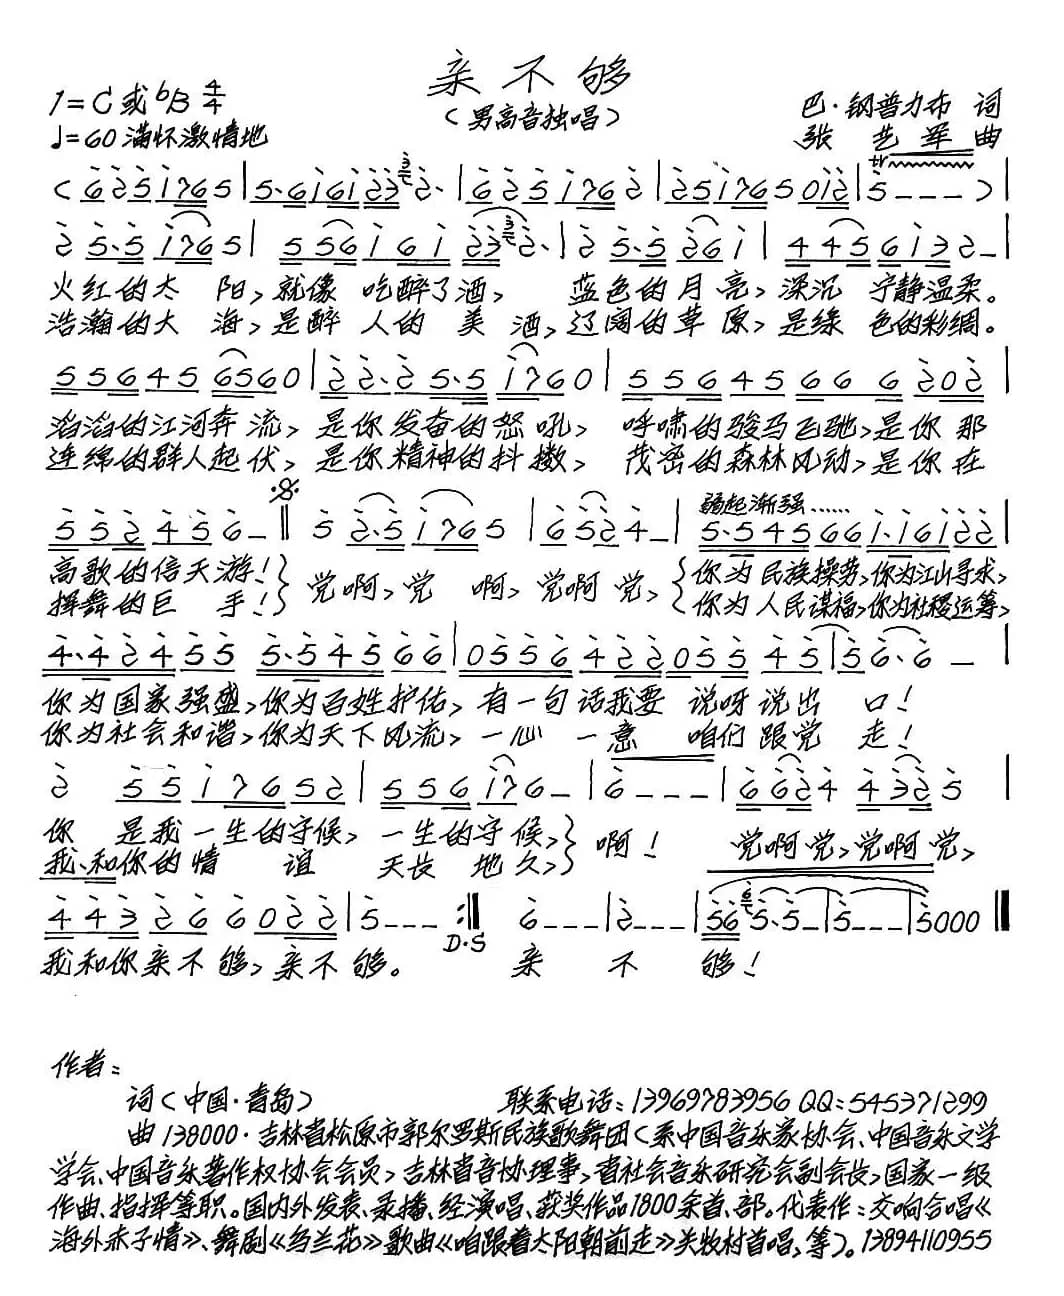 亲不够
1=C或bB 4/4
（男高音独唱）
巴·钢普力布 词
♩=60 满怀激情地
张艺军 曲
火红的太 阳，就像 吃醉了酒， 蓝色的月亮，深沉 宁静温柔。
浩瀚的大 海，是醉 人的 美 酒，辽阔的草 原，是绿 色的彩绸。
滔滔的江河奔 流，是你发奋的怒吼， 呼啸的骏马飞驰，是你 那
连绵的群人起伏，是你精神的抖擞， 茂密的森林风动，是你在
弱起渐强……
高歌的信天游！} 党啊，党 啊，党啊党，{你为民族操劳，你为江山寻求，
挥舞的巨 手！} {你为人民谋福，你为社稷运筹，
你为国家强盛，你为百姓护佑，有一句话我要 说呀说出 口！
你为社会和谐，你为天下风流，一心 一意 咱们跟党 走！
你 是我一生的守候，一生的守候，} 啊！ 党啊党，党啊党，
我、和你的情 谊 天长 地久，}
D.S
我和你亲不够，亲不够。 亲 不 够！
作者：
词（中国·青岛） 联系电话：13969783956 QQ：545371299
曲 138000·吉林省松原市郭尔罗斯民族歌舞团（系中国音乐家协会、中国音乐文学
学会、中国音乐著作权协会会员，吉林省音协理事，省社会音乐研究会副会长，国家一级
作曲、指挥等职。国内外发表、录播、经演唱、获奖作品1800余首、部。代表作：交响合唱《
海外赤子情》、舞剧《乌兰花》歌曲《咱跟着太阳朝前走》关牧村首唱，等）。13894110955